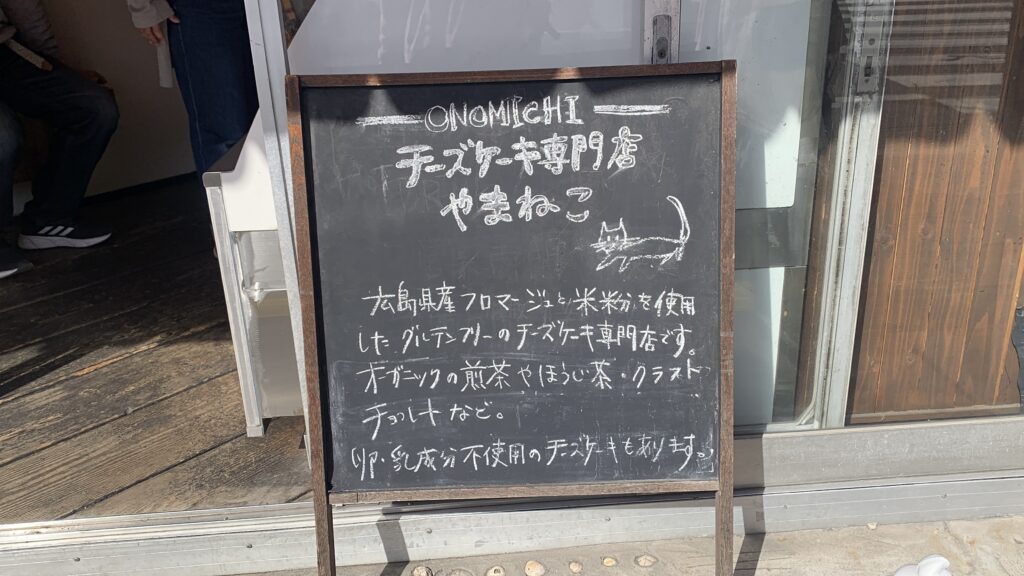 ONOMICHI
チーズケーキ専門店
やまねこ
広島県産フロマージュと米粉を使用
した、グルテンフリーのチーズケーキ専門店です。
オーガニックの煎茶やほうじ茶・クラフト
チョコレートなど。
(卵・乳成分不使用のチーズケーキもあります。)